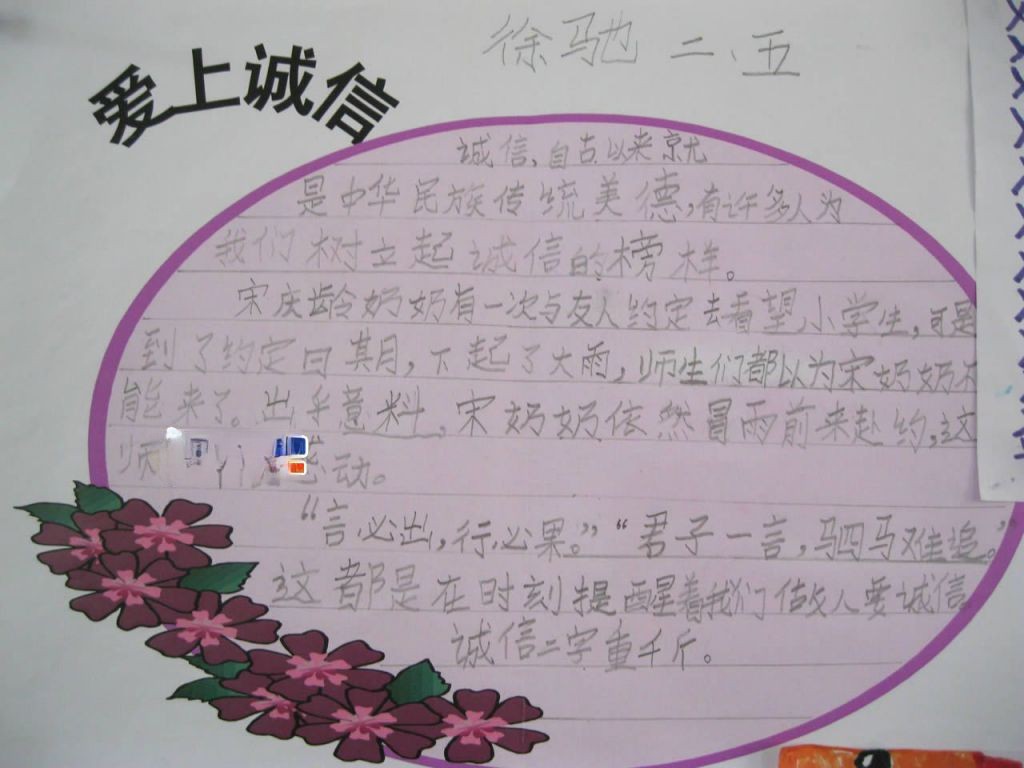 徐驰 二、五
爱上诚信
诚信,自古以来就
是中华民族传统美德,有许多人为
我们树立起诚信的榜样。
宋庆龄奶奶有一次与友人约定去看望小学生,可是
到了约定日期,下起了大雨,师生们都以为宋奶奶不
能来了。出乎意料,宋奶奶依然冒雨前来赴约,这
师动。
“言必出,行必果。”“君子一言,驷马难追。”
这都是在时刻提醒着我们做人要诚信。
诚信二字重千斤。